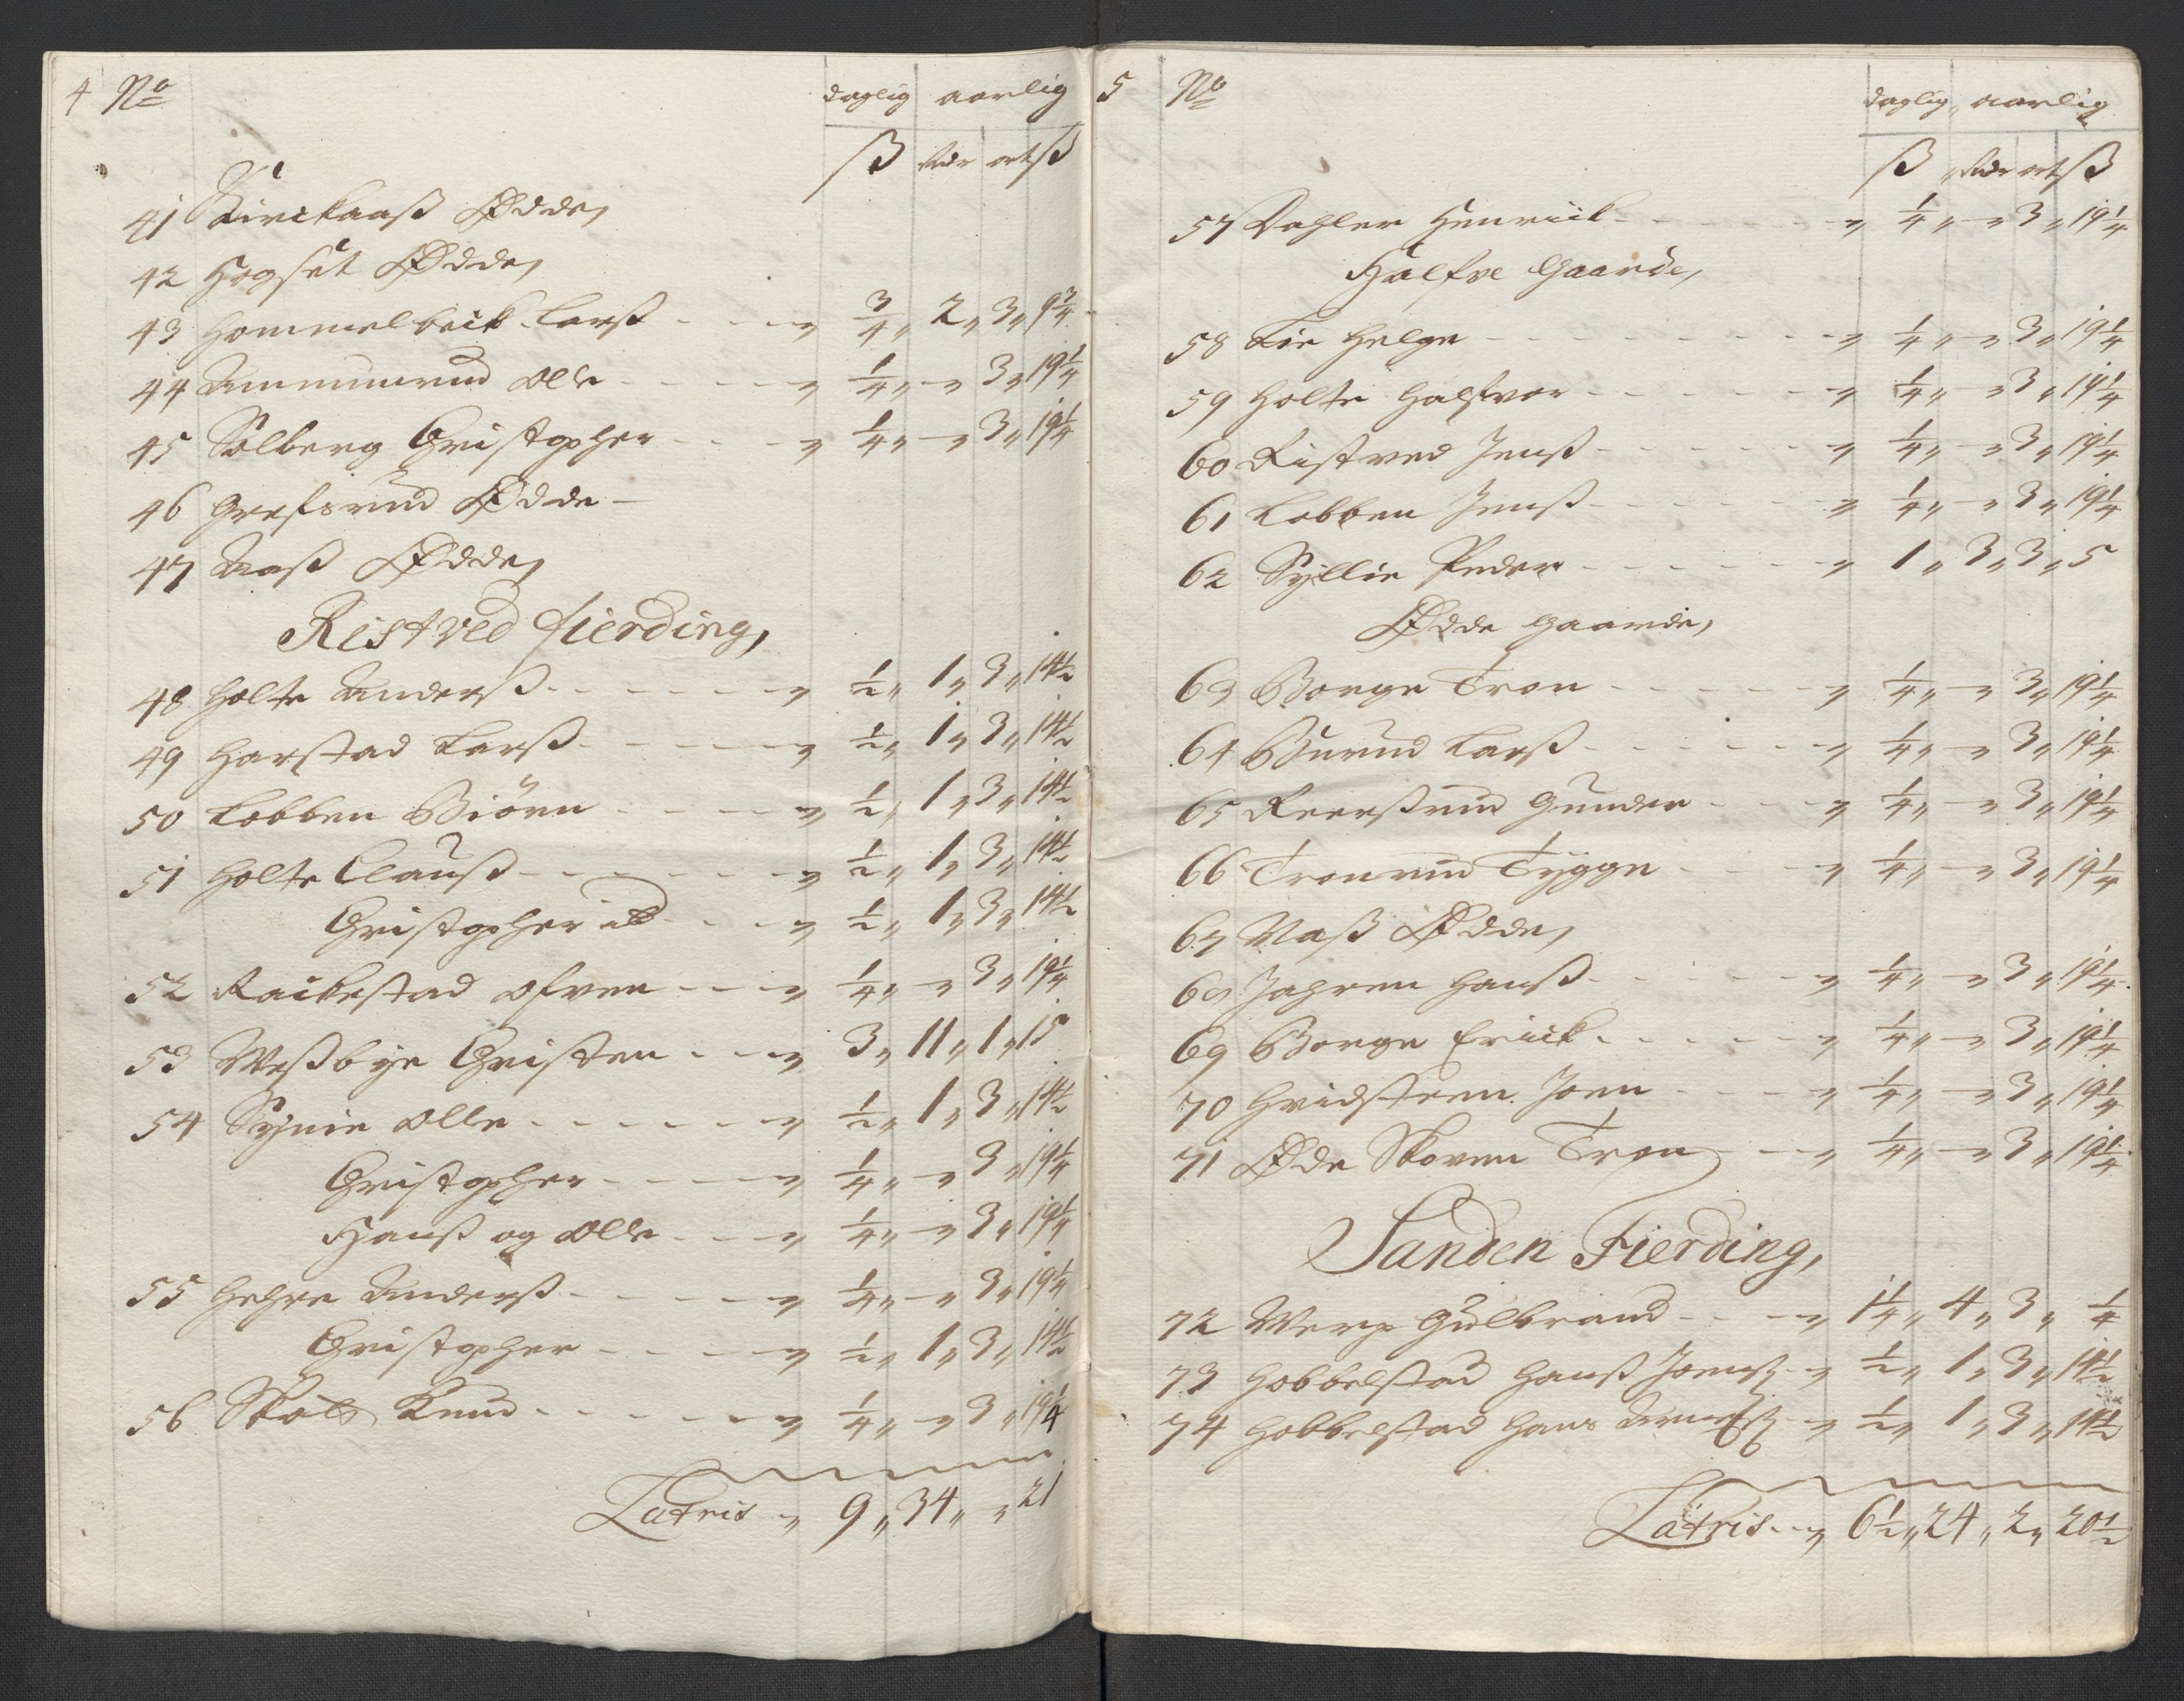 4 No daglig aarlig
ß rdr ort ß
41 Kirckaaß Ødde,
42 Hogset Ødde,
43 Hommelbeik Larß - - - " 3/4 " 2 " 3 " 9 3/4
44 Ammunrud Olle - - - " 1/4 " - " 3 " 19 1/4
45 Solberg Christopher - - - " 1/4 " - " 3 " 19 1/4
46 Grefsrud Ødde -
47 Aaß Ødde,
Ristved fierding,
48 Holte Anderß - - - " 1/2 " 1 " 3 " 14 1/2
49 Harstad Larß - - - " 1/2 " 1 " 3 " 14 1/2
50 Lobben Biörn - - - " 1/2 " 1 " 3 " 14 1/2
51 Holte Clauß - - - " 1/2 " 1 " 3 " 14 1/2
Christopher ib - - - " 1/2 " 1 " 3 " 14 1/2
52 Rackestad Ofven - - - " 1/4 " - " 3 " 19 1/4
53 Weßbye Christen - - - " 3 " 11 " 1 " 15
54 Synie Olle - - - " 1/2 " 1 " 3 " 14 1/2
Christopher - - - " 1/4 " - " 3 " 19 1/4
Hanß og Olle - - - " 1/4 " - " 3 " 19 1/4
55 Hehre Anderß - - - " 1/4 " - " 3 " 19 1/4
Christopher - - - " 1/2 " 1 " 3 " 14 1/2
56 Knud - - - " 1/4 " - " 3 " 19 1/4
Latris " 9 " 34 " - " 21
5 No daglig " aarlig
ß " rdr ort ß
57 Dahler Henrick - - - " 1/4 " - " 3 " 19 1/4
Halfve Gaarde,
58 Lie Helge - - - " 1/4 " - " 3 " 19 1/4
59 Holte Halfvor - - - " 1/4 " - " 3 " 19 1/4
60 Ristved Jenß - - - " 1/4 " - " 3 " 19 1/4
61 Lobben Jenß - - - " 1/4 " - " 3 " 19 1/4
62 Syllie Peder - - - " 1 " 3 " 3 " 5
Ødde Gaarde,
63 Borge Tron - - - " 1/4 " - " 3 " 19 1/4
64 Burud Larß - - - " 1/4 " - " 3 " 19 1/4
65 Reerßrud Gunder - - - " 1/4 " - " 3 " 19 1/4
66 Tronrud Tygge - - - " 1/4 " - " 3 " 19 1/4
67 Naß Ødde,
68 Jahren Hanß - - - " 1/4 " - " 3 " 19 1/4
69 Borge Erick - - - " 1/4 " - " 3 " 19 1/4
70 Hvidsteen Joen - - - " 1/4 " - " 3 " 19 1/4
71 Øde Skoven Tron - - - " 1/4 " - " 3 " 19 1/4
Sanden Fierding,
72 Werp Gulbrand - - - " 1 1/4 " 4 " 3 " 1/4
73 Hobbelstad Hanß Joenß - - " 1/2 " 1 " 3 " 14 1/2
74 Hobbelstad Hans - - " 1/2 " 1 " 3 " 14 1/2
Latris - - " 6 1/2 " 24 " 2 " 20 1/2